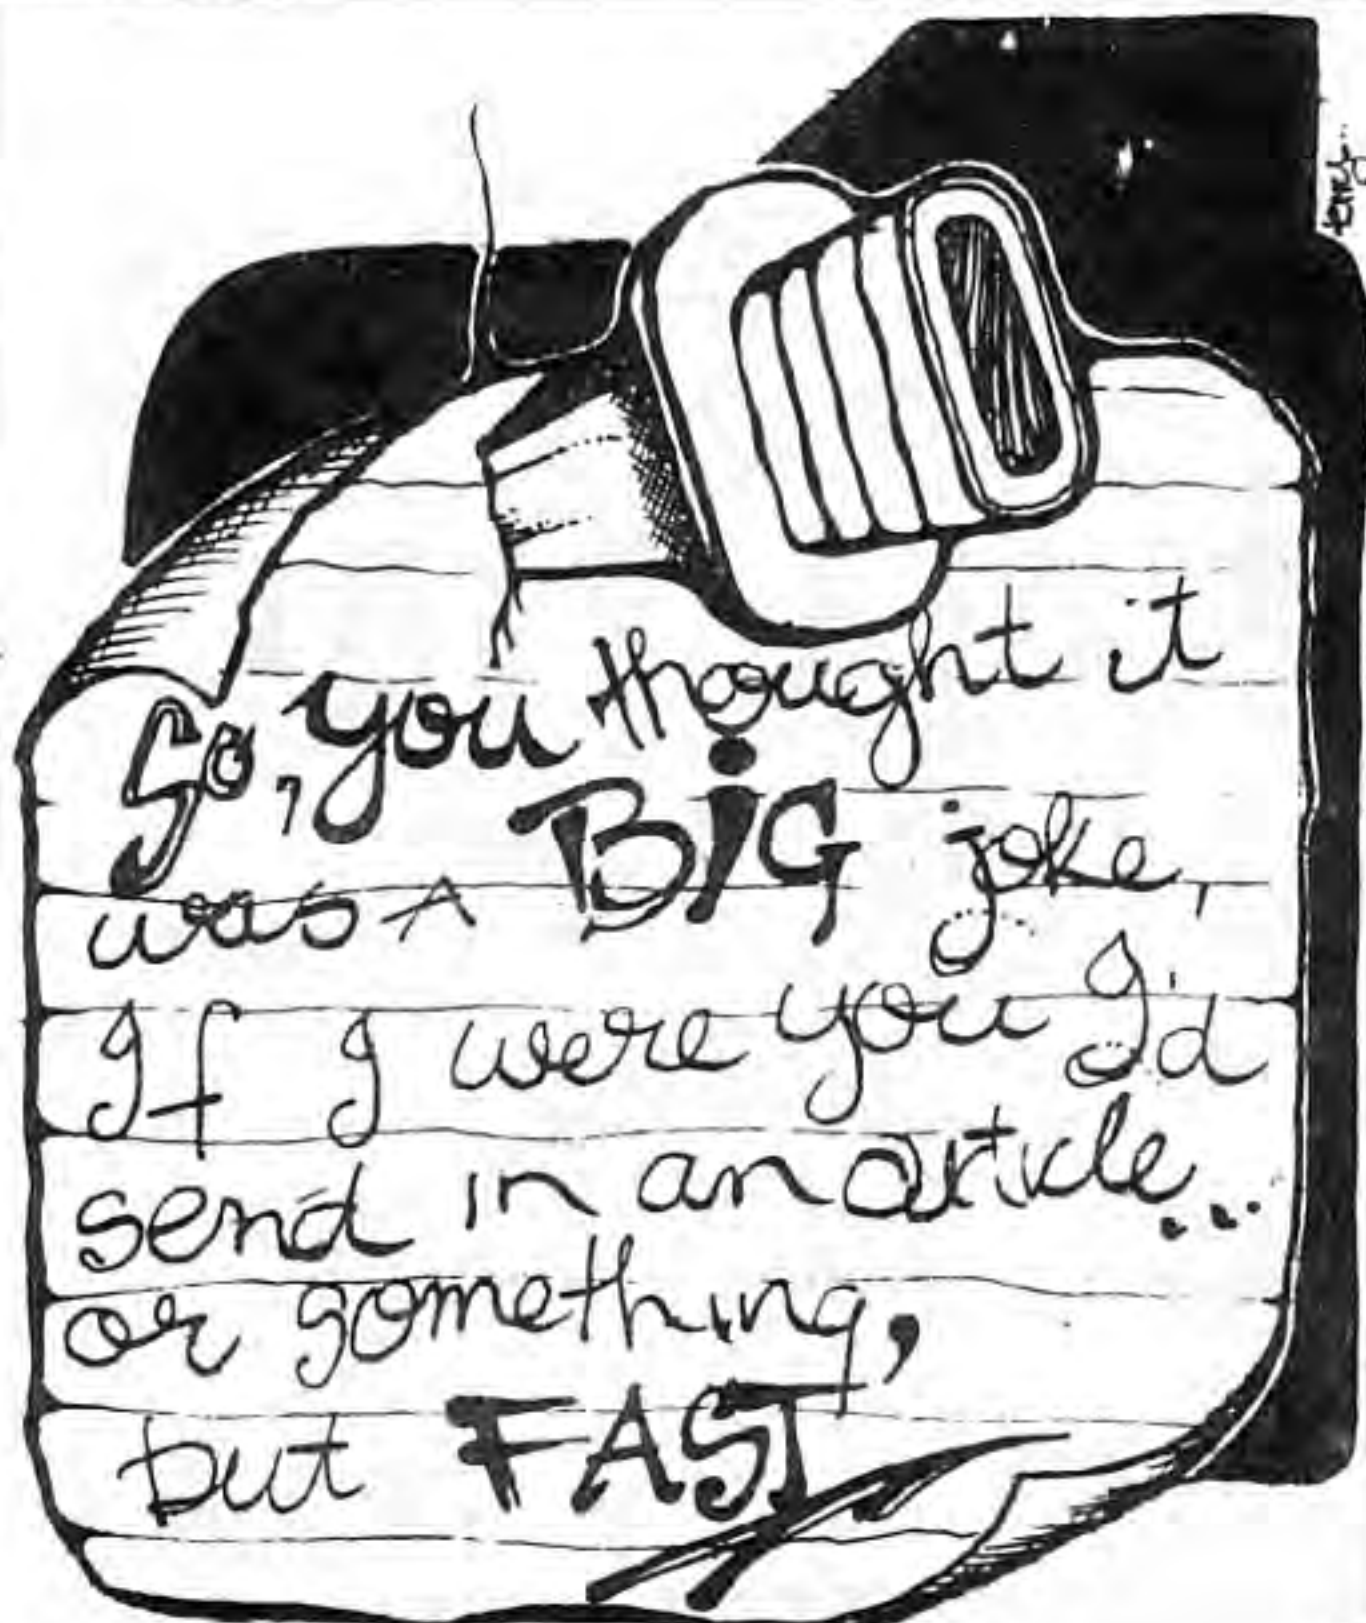 So, you thought it
was A BiG joke,
If I were you I'd
send in an article...
or something,
but FAST